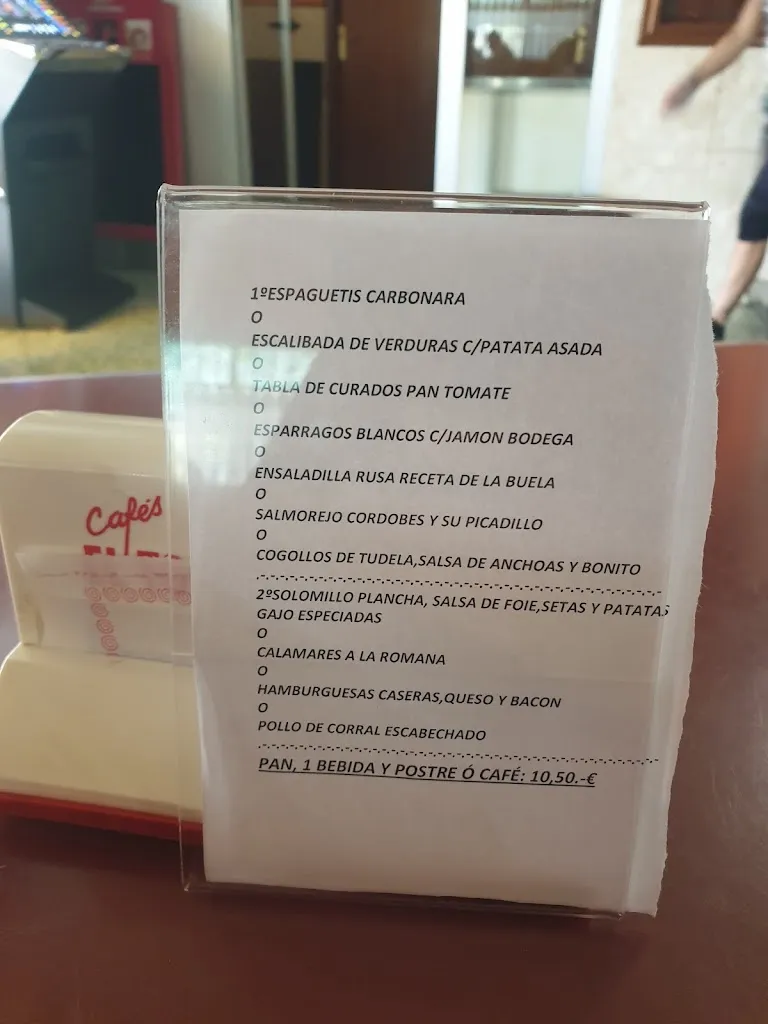 1ºESPAGUETIS CARBONARA
O
ESCALIBADA DE VERDURAS C/PATATA ASADA
O
TABLA DE CURADOS PAN TOMATE
O
ESPARRAGOS BLANCOS C/JAMON BODEGA
O
ENSALADILLA RUSA RECETA DE LA BUELA
O
SALMOREJO CORDOBES Y SU PICADILLO
O
COGOLLOS DE TUDELA,SALSA DE ANCHOAS Y BONITO
2ºSOLOMILLO PLANCHA, SALSA DE FOIE,SETAS Y PATATAS
GAJO ESPECIADAS
O
CALAMARES A LA ROMANA
O
HAMBURGUESAS CASERAS,QUESO Y BACON
O
POLLO DE CORRAL ESCABECHADO
PAN, 1 BEBIDA Y POSTRE Ó CAFÉ: 10,50.-€
Cafés